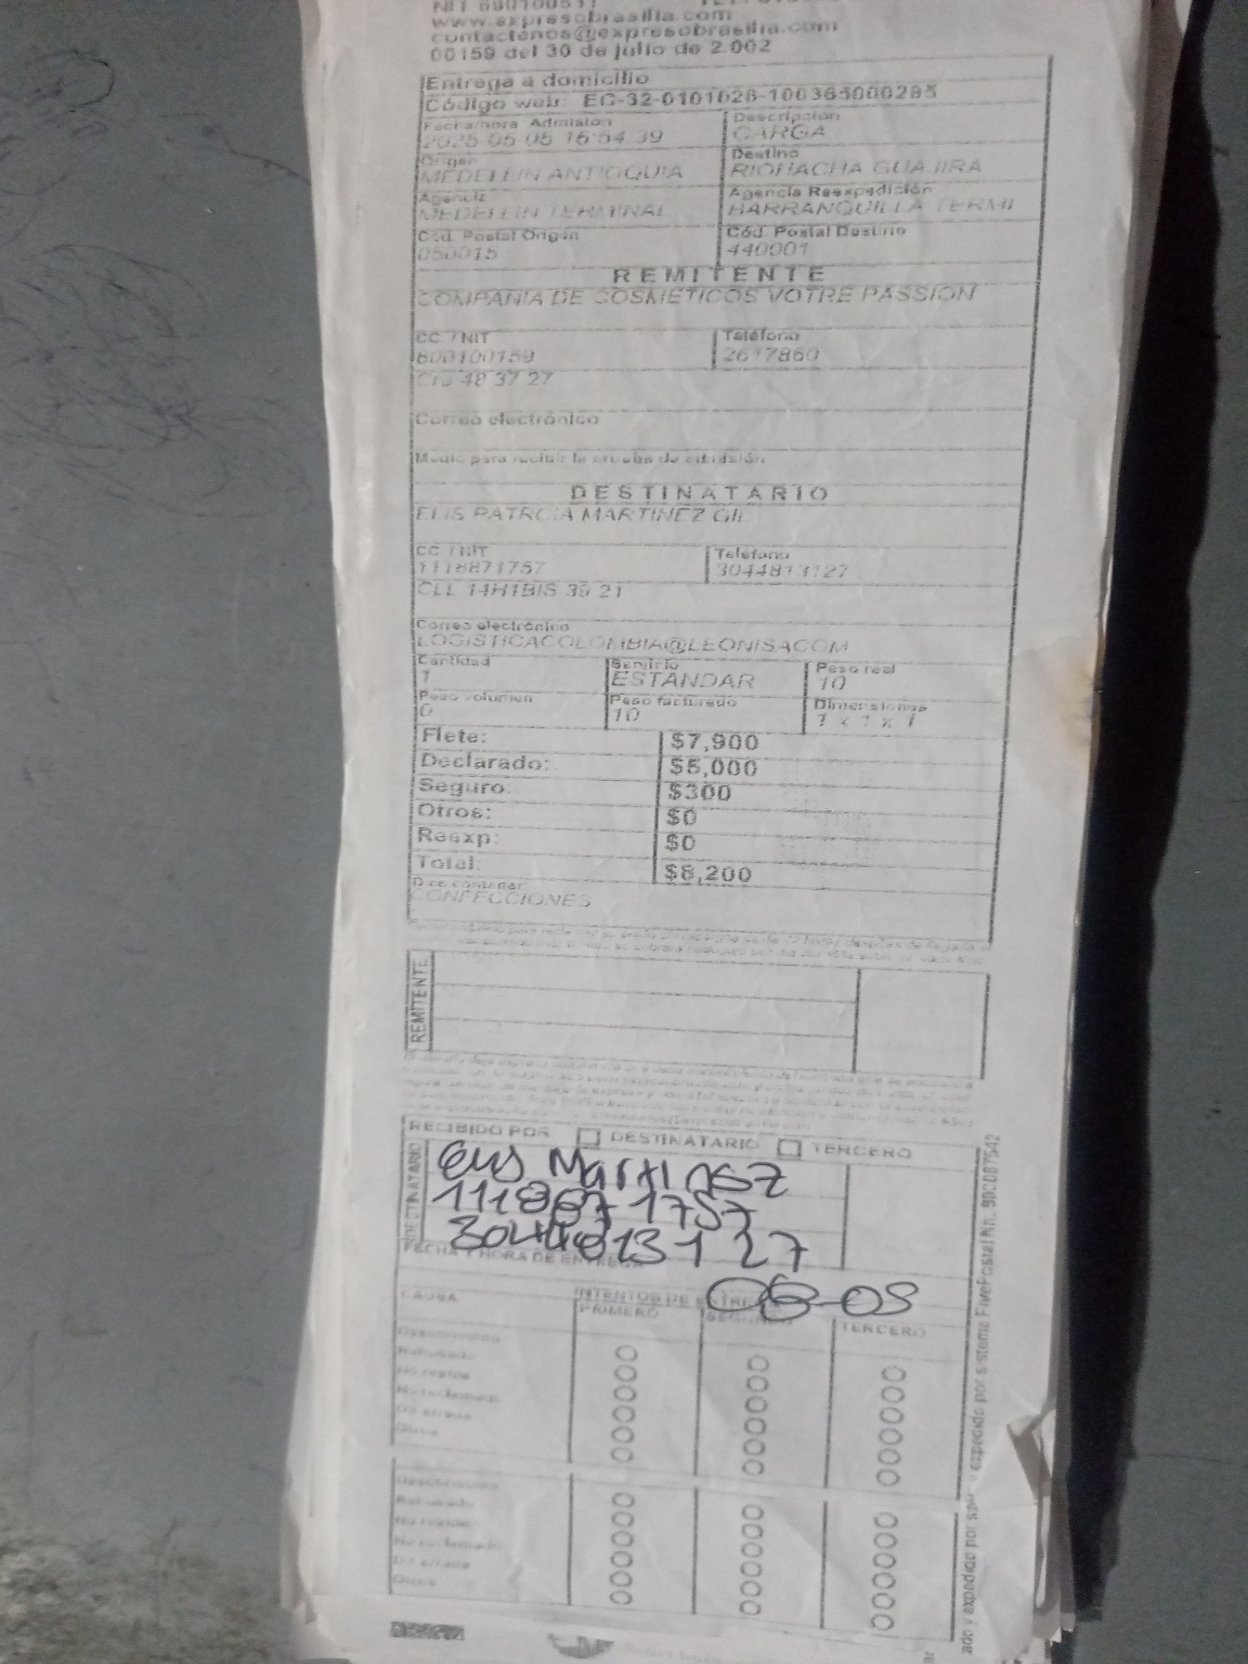 NIT 890100531
www.expresobrasilia.com
contactenos@expresobrasilia.com
00159 del 30 de julio de 2.002
Entrega a domicilio
Código web: EC-32-0101028-100365000295
Fecha/hora Admisión
Descripción
2025-05-05 16:54:39
CARGA
Origen
Destino
MEDELLIN ANTIOQUIA
RIOHACHA GUAJIRA
Agencia
Agencia Reexpedición
MEDELLIN TERMINAL
BARRANQUILLA TERMI
Cód. Postal Origen
Cód. Postal Destino
050015
440001
REMITENTE
COMPAÑIA DE COSMETICOS VOTRE PASSION
CC. / NIT
Teléfono
800100159
2617860
Cra 48 37 27
Correo electrónico
Medio para recibir la prueba de admisión:
DESTINATARIO
ELIS PATRCIA MARTINEZ GIL
CC. / NIT
Teléfono
1118871757
3044813127
CLL 14H1BIS 35 21
Correo electrónico
LOGISTICACOLOMBIA@LEONISACOM
Cantidad
Servicio
Peso real
1
ESTANDAR
10
Peso volumen
Peso facturado
Dimensiones
0
10
1 x 1 x 1
Flete: $7,900
Declarado: $5,000
Seguro: $300
Otros: $0
Reexp: $0
Total: $8,200
Dice contener
CONFECCIONES
REMITENTE
RECIBIDO POR DESTINATARIO TERCERO
DESTINATARIO
Elis Martinez
1118871757
3044813127
FECHA Y HORA DE ENTREGA
06-05
CAUSA
INTENTOS DE ENTREGA
PRIMERO SEGUNDO TERCERO
Desconocido
Rehusado
No reside
No reclamado
Dir errada
Otros
Desconocido
Rehusado
No reside
No reclamado
Dir errada
Otros
expedido por sistema FivePostal Nit.